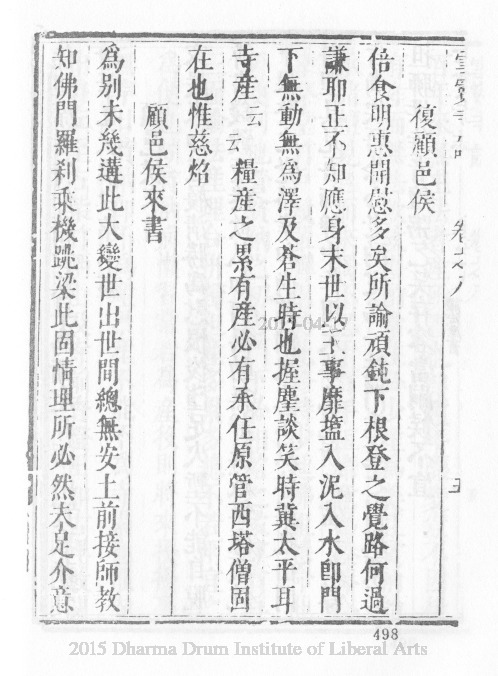 復顧邑侯
倍食明惠開慰多矣所諭頑鈍下根登之覺路何過
謙耶正不知應身末世以王事靡盬入泥入水即門
下無動無為澤及蒼生時也握麈談笑時冀太平耳
寺產云云糧產之累有產必有承任原管西塔僧固
在也惟慈炤
顧邑侯來書
為別未幾遘此大變世出世間總無安土前接師教
知佛門羅剎乘機跳梁此固情理所必然夫足介意
498
2015 Dharma Drum Institute of Liberal Arts